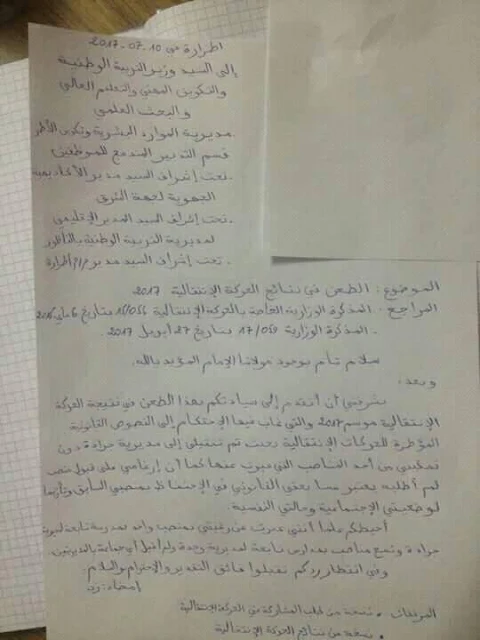 الحرارة في 10-07-2017
إلى السيد وزير التربية الوطنية
والتكوين المهني والتعليم العالي
والبحث العلمي
- مديرية الموارد البشرية وتكوين الأطر
قسم التدبير المندمج للموظفين
- تحت إشراف السيد مدير الأكاديمية
الجهوية لجهة الشرق
- تحت إشراف السيد المدير الإقليمي
لمديرية التربية الوطنية بالناظور
- تحت إشراف السيد مدير
الموضوع: الطعن في نتائج الحركة الإنتقالية 2017
المراجع: - المذكرة الوزارية الخاصة بالحركة الإنتقالية بتاريخ 6 ماي 2016
- المذكرة الوزارية 17/059 بتاريخ 27 أبريل 2017.
سلام تام بوجود مولانا الإمام المؤيد بالله.
وبعد،
يشرفني أن أتقدم إلى سيادتكم بهذا الطعن في نتيجة الحركة
الإنتقالية موسم 2017 والتي غاب فيها الإحتكام إلى النصوص القانونية
المؤطرة للحركات الإنتقالية بحيث تم تنقيلي إلى مديرية جرادة دون
تمكيني من أحد المناصب التي عبرت عنها كما أن إرغامي على قبول منصب
لم أطلبه يعتبر مسا بحقي القانوني في الإحتفاظ بمنصبي السابق
لوضعيتي الإجتماعية وحالتي النفسية.
أحيطكم علما أنني عبرت عن رغبتي بمنصب واحد لمدرسة تابعة لمديرية
جرادة وتسع مناصب بمدارس تابعة لمديرية وجدة ولم أقبل أي جماعة بالمديريتين.
وفي انتظار ردكم تقبلوا فائق التقدير والإحترام والسلام.
إمضاء:
المرفقات: • نسخة من طلب المشاركة في الحركة الإنتقالية
• نسخة من نتائج الحركة الإنتقالية